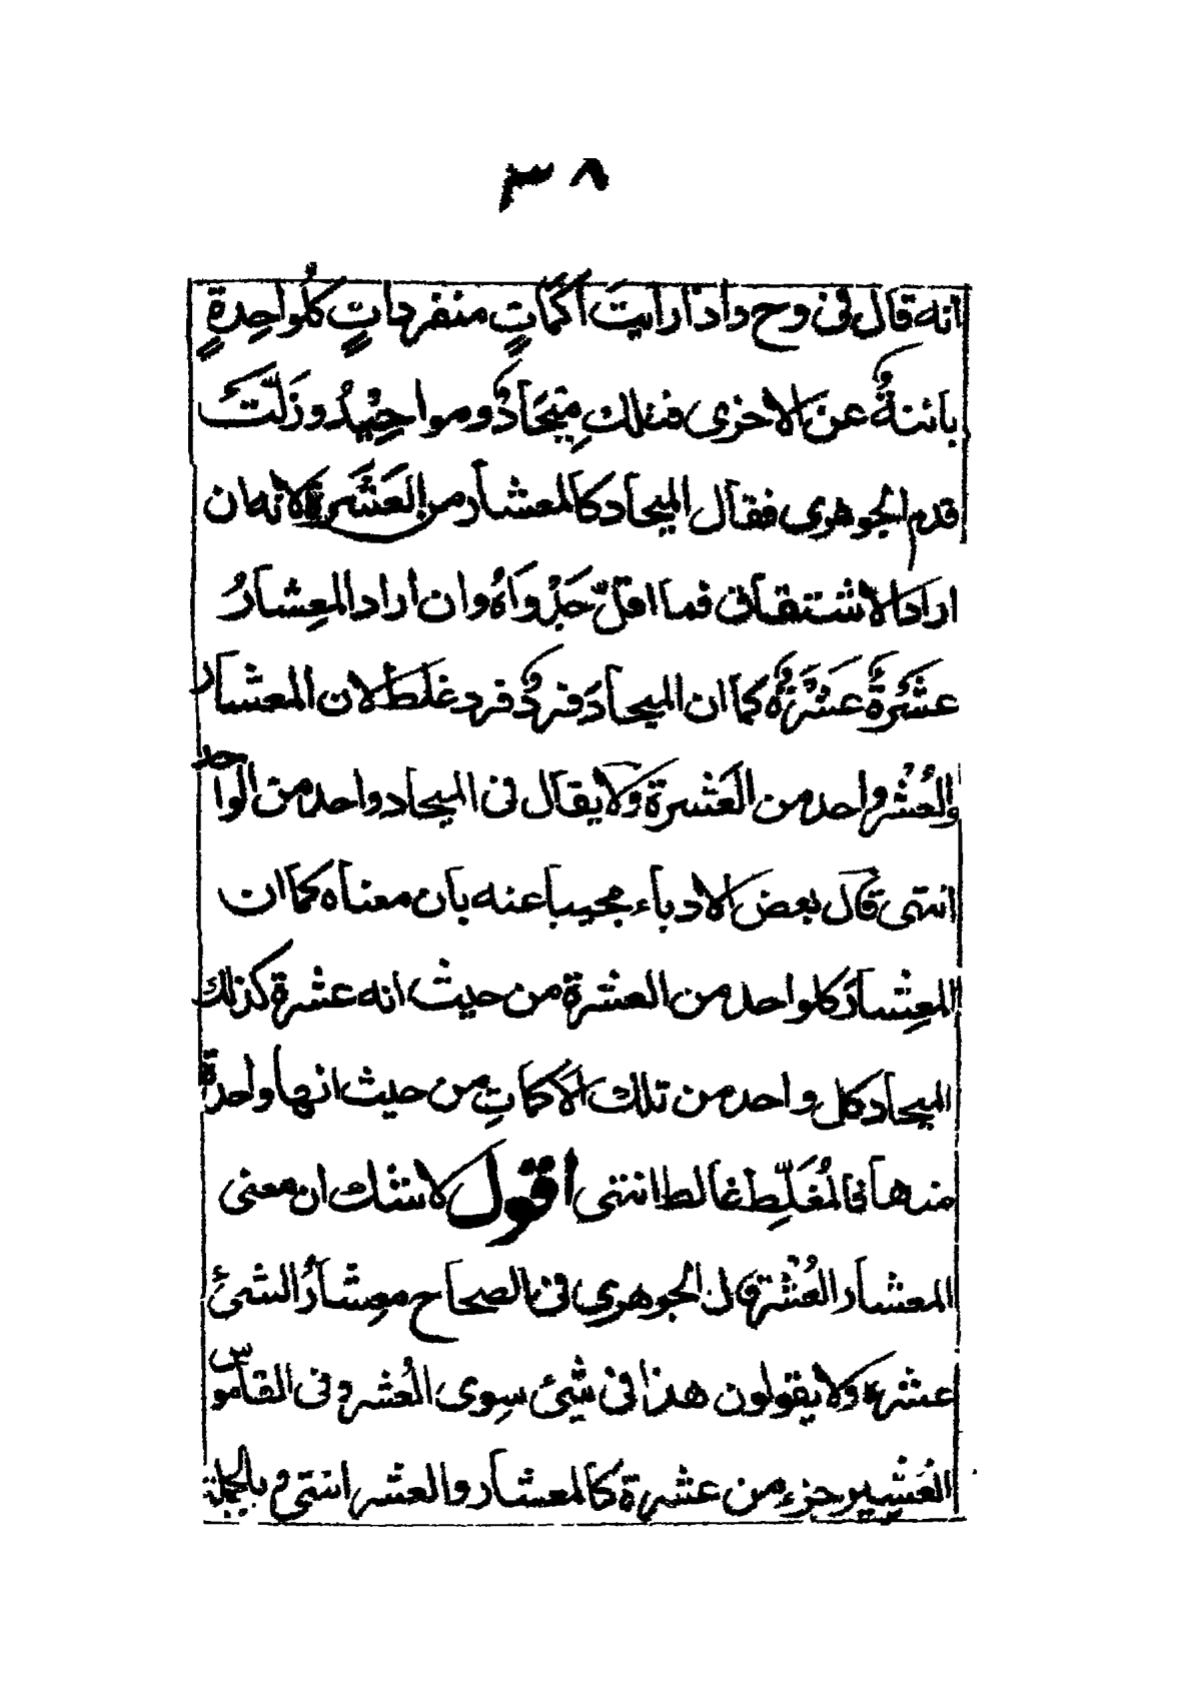 ٣٨
انه قال فى وح د اذا رايت اكَمَاتٍ منفرداتٍ كلُواحِدةٍ
بائنةٌ عن الاخرى فتلكِ مِيْحَادٌ ومواحِيْدُ وزَلّتْ
قدم الجوهرى فقال الميحاد كالمعشار من العَشَرةِ لانه ان
اراد الاشتقاق فما اقلّ جَدْوَاهُ وان اراد المعِشارُ
عَشَرَةٌ عَشَرَةٌ كما ان الميحادَ فردٌ فرد غلط لان المعشار
والعُشْر واحد من العَشرة ولا يقال فى الميحاد واحد من الواحد
انتهى قال بعض الادباء مجيبا عنه بان معناه كما ان
المعِشارَ كلواحد من العشرة من حيث انه عشرة كذلك
الميحاد كل واحد من تلك الاكماتِ من حيث انها واحدة
منها فالمُغَلِّط غالط انتهى اقول لا شك ان معنى
المعشار العُشْر قال الجوهري فى الصحاح معِشارُ الشئ
عشره ولا يقولون هذا فى شئ سِوى العُشر وفى القاموس
العَشِير جزء من عشرة كالمعشار والعشر انتهى وبالجملة